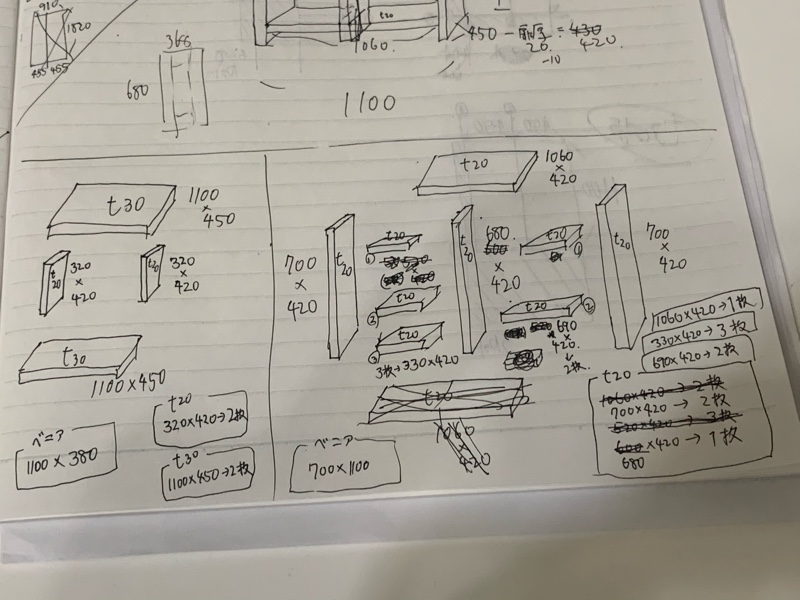 910
1820
455 455
368
680
t20
1060.
450 - 前厚 = 430
20. 420
-10
1100
t30
1100
×
450
t20
320
×
420
t20
320
×
420
t30
1100×450
ベニア
1100×380
t20
320×420→2枚
t30
1100×450→2枚
t20
1060
×
420
700
×
420
t20
t20
①
t20
②
t20
③
3枚→330×420
t20
680
600
×
420
t20
①
t20
②
690
×
420
↓
2枚
t20
700
×
420
t20
1060
×
420
ベニア
700×1100
1060×420→1枚
330×420→3枚
690×420→2枚
t20
1060×420→2枚
700×420→2枚
520×420→3枚
600×420→1枚
680